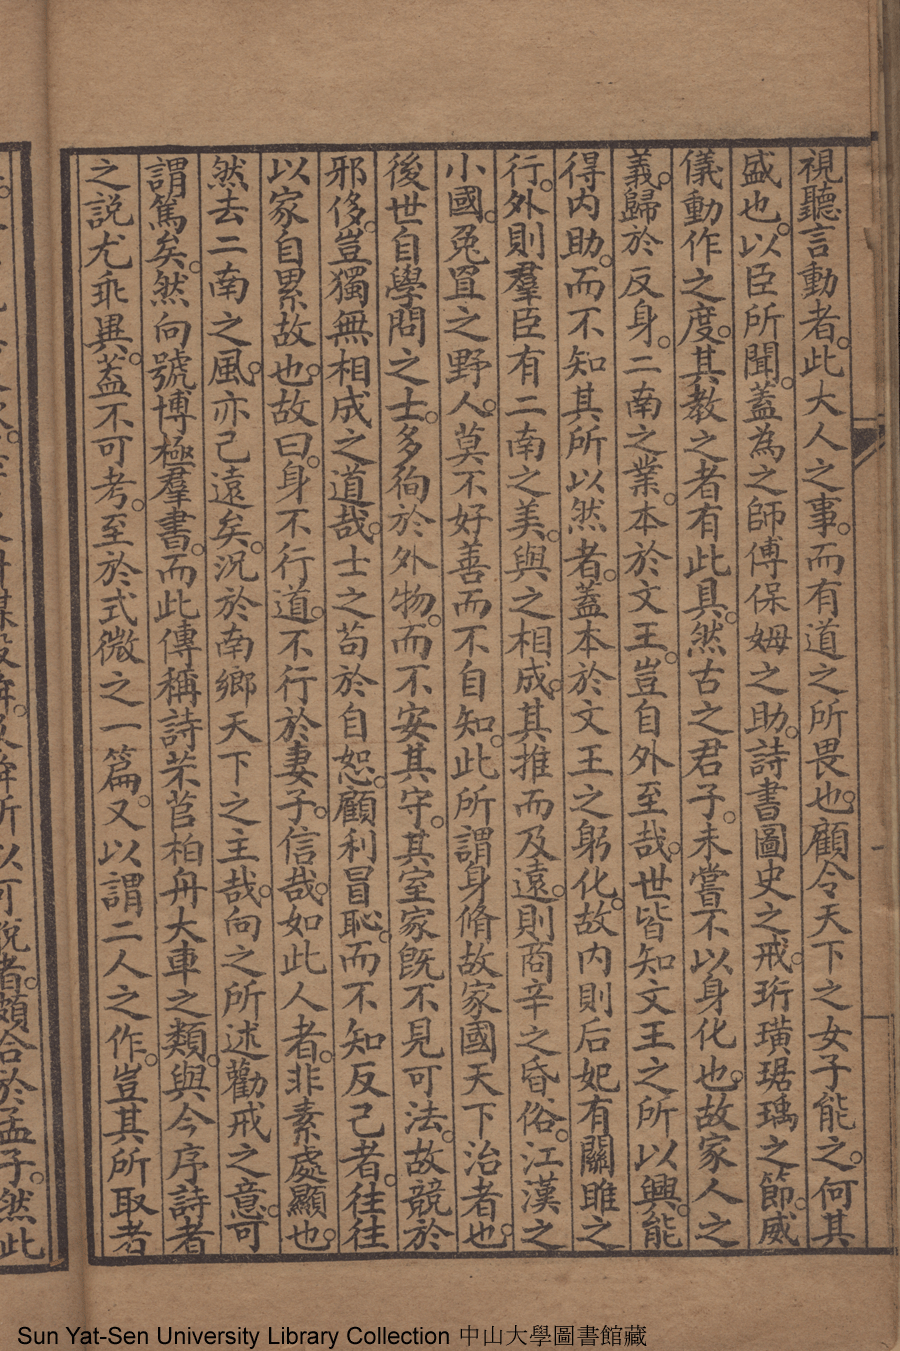 視聽言動者。此大人之事。而有道之所畏也。顧令天下之女子能之。何其
盛也。以臣所聞。蓋為之師傅保姆之助。詩書圖史之戒。珩璜琚瑀之節。威
儀動作之度。其教之者有此具。然古之君子。未嘗不以身化也。故家人之
義。歸於反身。二南之業。本於文王。豈自外至哉。世皆知文王之所以興。能
得内助。而不知其所以然者。蓋本於文王之躬化。故内則后妃有關雎之
行。外則羣臣有二南之美。與之相成。其推而及遠。則商辛之昏俗。江漢之
小國。兔罝之野人。莫不好善而不自知。此所謂身脩故家國天下治者也。
後世自學問之士。多徇於外物。而不安其守。其室家旣不見可法。故競於
邪侈。豈獨無相成之道哉。士之苟於自恕。顧利冒恥。而不知反己者。往往
以家自累故也。故曰。身不行道。不行於妻子。信哉。如此人者。非素處顯也。
然去二南之風。亦已遠矣。況於南鄉天下之主哉。向之所述勸戒之意。可
謂篤矣。然向號博極羣書。而此傳稱詩芣苢柏舟大車之類。與今序詩者
之説尤乖異。葢不可考。至於式微之一篇。又以謂二人之作。豈其所取者
所以可說者。頗合於孟子。然此
Sun Yat-Sen University Library Collection 中山大學圖書館藏